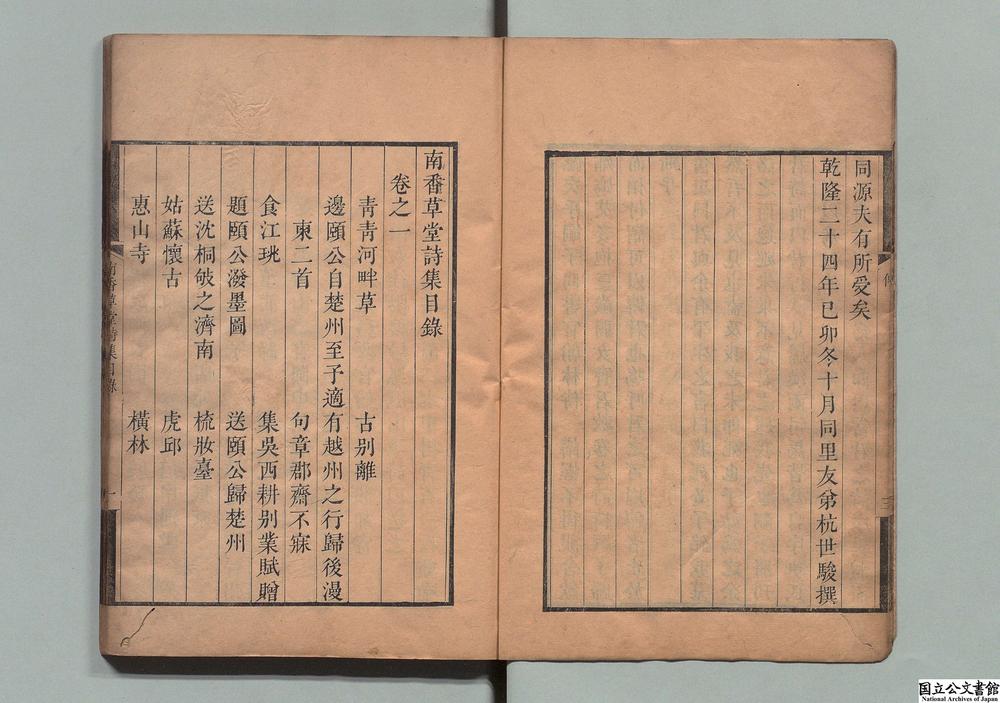 同源夫有所受矣
乾隆二十四年己卯冬十月同里友弟杭世駿撰
南香草堂詩集目錄
卷之一
靑靑河畔草　古别離
邊頤公自楚州至予適有越州之行歸後漫
柬二首　句章郡齋不寐
食江珧　集吳西耕别業賦贈
題頤公潑墨圖　送頤公歸楚州
送沈桐㪣之濟南　梳妝臺
姑蘇懷古　虎邱
惠山寺　橫林
南香草堂詩集目錄
一
国立公文書館
National Archives of Japan